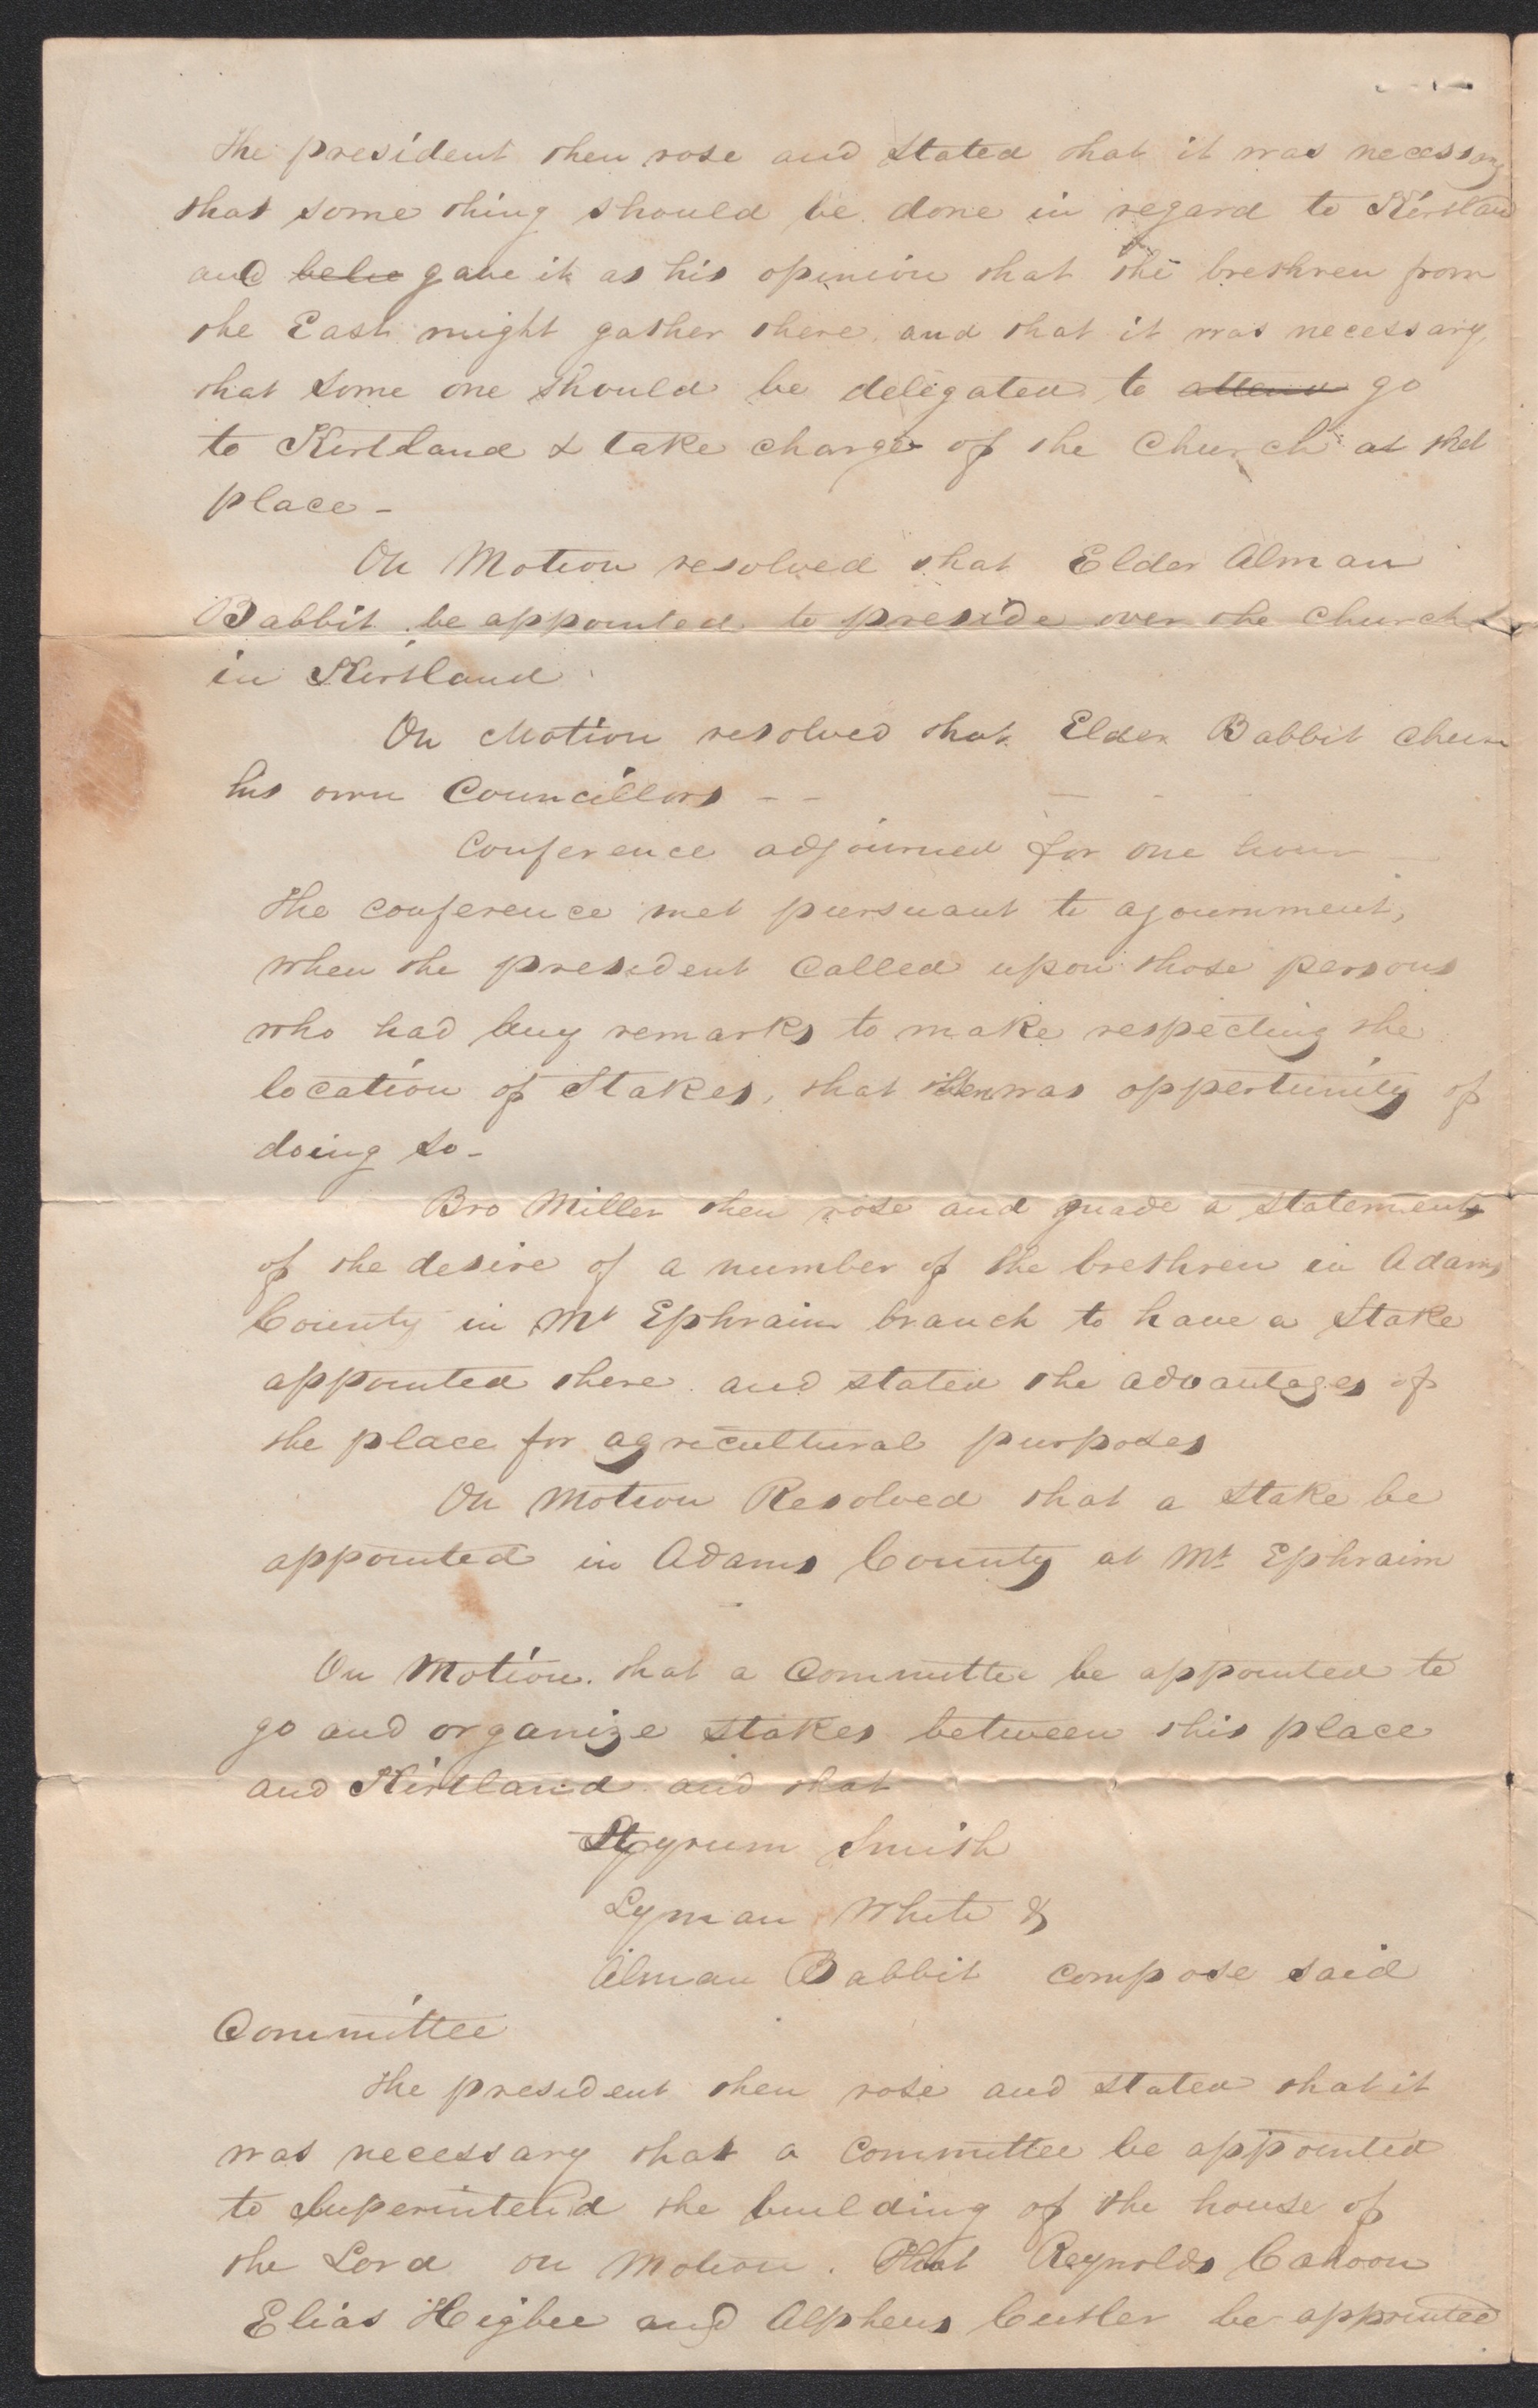 The president then rose and stated that it was necessary
that some thing should be done in regard to Kirtland
and belie gave it as his opinion that the brethren from
the East might gather there, and that it was necessary,
that some one should be delegated to attend go
to Kirtland & take charge of the Church at that
place -
On Motion resolved that Elder Alman
Babbit be appointed to preside over the church
in Kirtland
On Motion resolved that Elder Babbit
his own Councillors - -
Conference adjourned for one hour
The conference met pursuant to ajournment,
when the president called upon those persons
who had any remarks to make respecting the
location of Stakes, that there was oppertunity of
doing so -
Bro Miller then rose and made a statement
of the desire of a number of the brethren in Adams
County in Mt Ephraim branch to have a Stake
appointed there. and stated the advantages of
the place for agricultural purposes
On Motion Resolved that a Stake be
appointed in Adams County at Mt Ephraim
On Motion. that a Committee be appointed to
go and organize stakes between this place
and Kirtland and that
Hyrum Smith
Lyman White &
Alman Babbit compose said
Committee
The president then rose and stated that it
was necessary that a Committee be appointed
to Superintend the building of the house of
the Lord on Motion. That Reynolds Cahoon
Elias Higbee and Alpheus Cutler be appointed